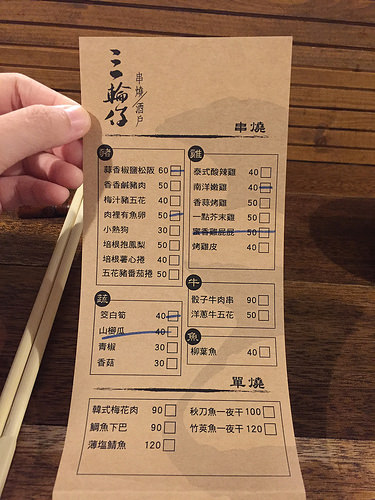 三輪仔
串燒/酒戶
串燒
豬
蒜香椒鹽松阪 60
香香鹹豬肉 50
梅汁豬五花 40
肉裡有魚卵 50
小熱狗 30
培根抱鳳梨 50
培根薯心捲 40
五花豬番茄捲 50
雞
泰式酸辣雞 40
南洋嫩雞 40
香蒜烤雞 50
一點芥末雞 50
蜜香雞屁屁 50
烤雞皮 40
蔬
筊白筍 40
山櫛瓜 40
青椒 30
香菇 30
牛
骰子牛肉串 90
洋蔥牛五花 50
魚
柳葉魚 40
單燒
韓式梅花肉 90
鯛魚下巴 90
薄塩鯖魚 120
秋刀魚一夜干 100
竹莢魚一夜干 120